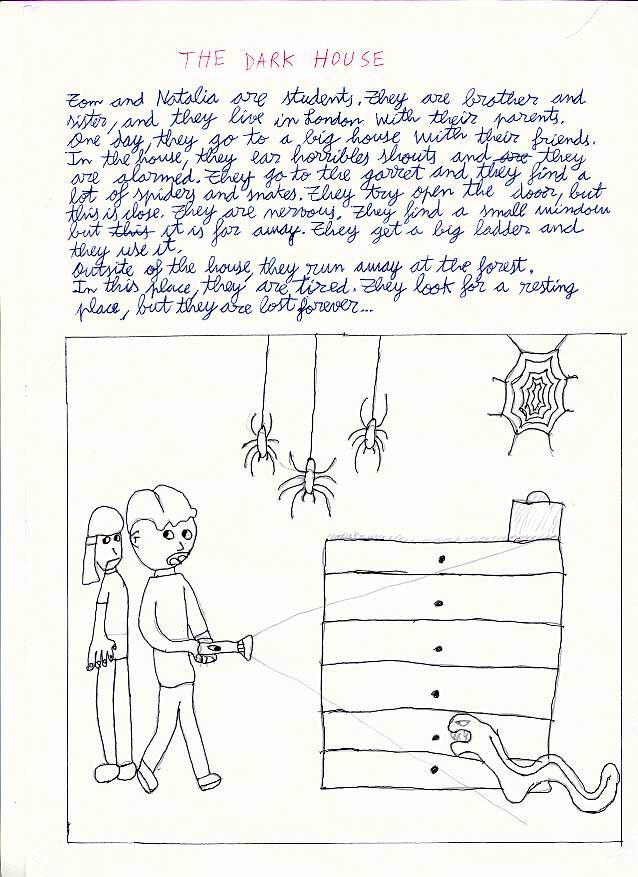 THE DARK HOUSE
Tom and Natalia are students. They are brother and
sister, and they live in London with their parents.
One day, they go to a big house with their friends.
In the house, they ear horribles shouts and are they
are alarmed. They go to the garret and they find a
lot of spiders and snakes. They try open the door, but
this is close. They are nervous. They find a small window
but this it is far away. They get a big ladder and
they use it.
Outside of the house, they run away at the forest.
In this place, they are tired. They look for a resting
place, but they are lost forever...